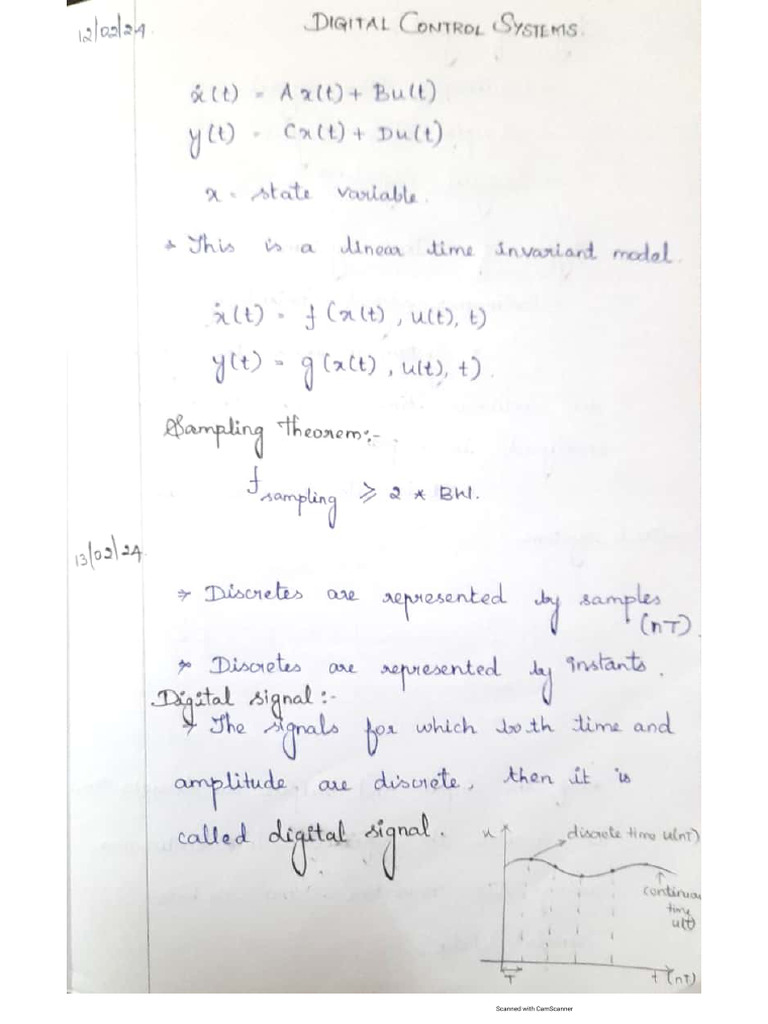 12/02/24
DIGITAL CONTROL SYSTEMS.
ẋ(t) = Ax(t) + Bu(t)
y(t) = Cx(t) + Du(t)
x = state variable.
* This is a linear time invariant model.
ẋ(t) = f (x(t) , u(t), t)
y(t) = g (x(t) , u(t), t).
Sampling theorem:-
f sampling ⩾ 2 * BW.
13/02/24
* Discretes are represented by samples
(nT)
* Discretes are represented by instants.
Digital signal:-
* The signals for which both time and
amplitude are discrete, then it is
called digital signal.
u
discrete time u(nT)
continuous
time
u(t)
T
t (nT)
Scanned with CamScanner